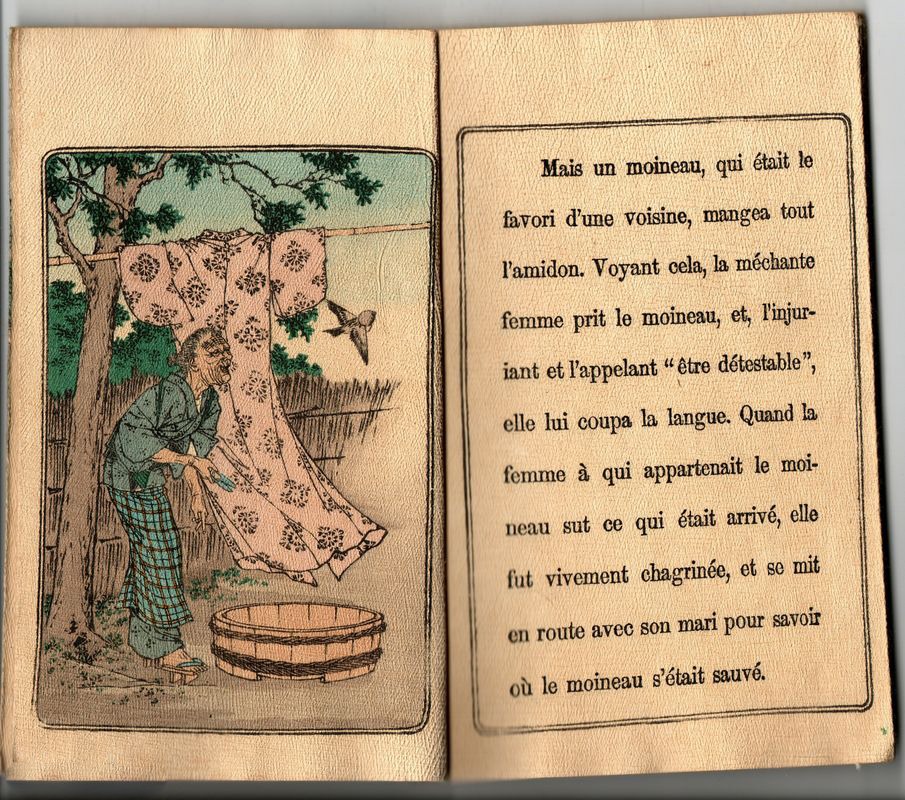 Mais un moineau, qui était le
favori d'une voisine, mangea tout
l'amidon. Voyant cela, la méchante
femme prit le moineau, et, l'injur-
iant et l'appelant “être détestable”,
elle lui coupa la langue. Quand la
femme à qui appartenait le moi-
neau sut ce qui était arrivé, elle
fut vivement chagrinée, et se mit
en route avec son mari pour savoir
où le moineau s'était sauvé.